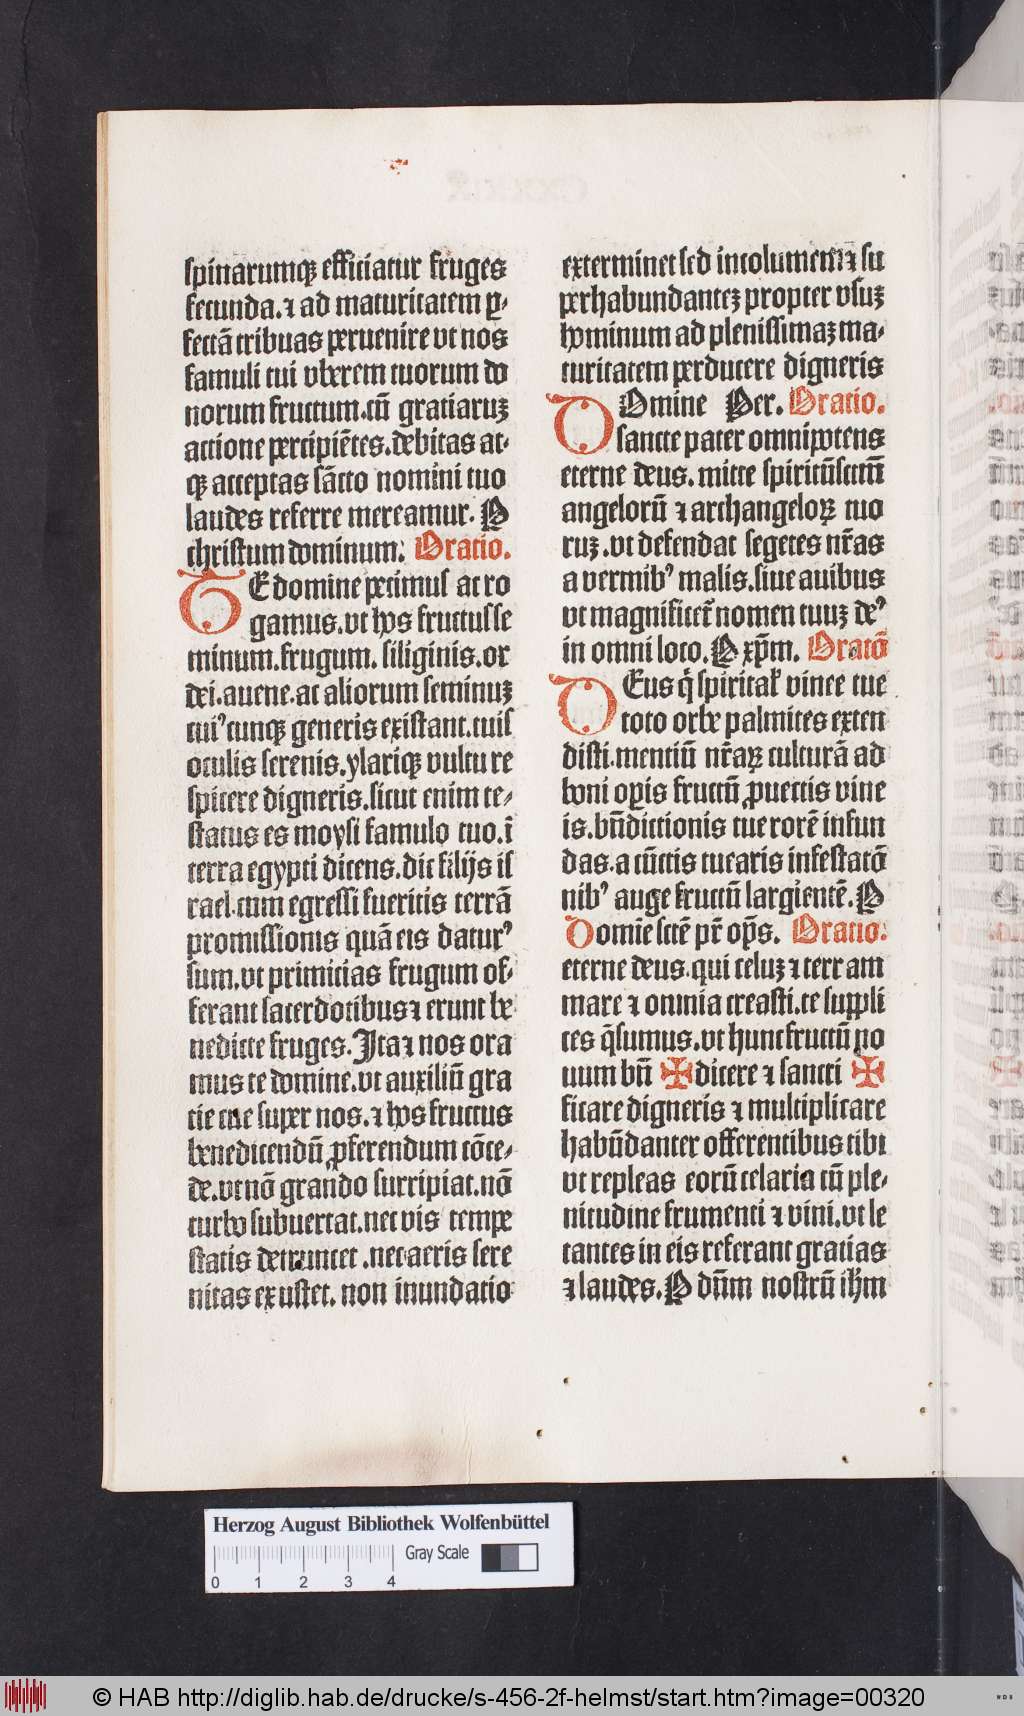 spinarumqꝫ efficiatur fruges
fecunda.⁊ ad maturitatem ꝑ-
fectā tribuas peruenire vt nos
famuli tui vberem tuorum do
norum fructum.cū gratiaruꝫ
actione percipiētes.debitas at-
qꝫ acceptas sācto nomini tuo
laudes referre mereamur. P
christum dominum. Oratio.
TE domine petimus ac ro
gamus.vt hos fructus se
minum.frugum. siliginis.or
dei.auene.ac aliorum seminuꝫ
cuiꝰcunqꝫ generis existant.tuis
oculis serenis.ylariqꝫ vultu re
spicere digneris.sicut enim te-
status es moysi famulo tuo.ī
terra egypti dicens.dic filijs is
rael.cum egressi fueritis terrā
promissionis quā eis daturꝰ
sum.vt primicias frugum of-
ferant sacerdotibus ⁊ erunt be
nedicte fruges. Ita ⁊ nos ora
mus te domine.vt auxiliū gra
cie tue super nos.⁊ hos fructus
benedicendū ꝓferendum cōce-
de.vt nō grando surripiat.nō
turbo subuertat.nec vis tempe
statis detruncet .nec aeris sere
nitas exustet. non inundatio
exterminet sed incolumem ⁊ su
perhabundanteꝫ propter vsuꝫ
hominum ad plenissimaꝫ ma-
turitatem perducere digneris
DOmine Per. Oratio.
sancte pater omnipotens
eterne deus. mitte spiritūsctm̄
angelorū ⁊ archangeloꝝ tuo
ruꝫ.vt defendat segetes nr̄as
a vermibꝰ malis.siue auibus
vt magnificet̄ nomen tuuꝫ deꝰ
in omni loco. P xp̄m. Oratō
DEus q̇ spiritał vinee tue
toto orbe palmites exten
disti.mentiū nr̄aꝝ culturā ad
boni oꝑis fructū ꝓuectis vine
is.bn̄dictionis tue rorē infun
das.a cūctis tuearis infestatō
nibꝰ auge fructū largientē. P
Domīe sctē pr̄ op̄s. Oratio.
eterne deus.qui celuꝫ ⁊ terram
mare ⁊ omnia creasti.te suppli
ces q̄sumus.vt hunc fructū no
uum bn̄ ✠ dicere ⁊ sancti ✠
ficare digneris ⁊ multiplicare
habūdanter offerentibus tibi
vt repleas eorū celaria cū ple-
nitudine frumenti ⁊ vini.vt le
tantes in eis referant gratias
⁊ laudes. P dn̄m nostrū ih̄m
Herzog August Bibliothek Wolfenbüttel
Gray Scale
0 1 2 3 4
© HAB http://diglib.hab.de/drucke/s-456-2f-helmst/start.htm?image=00320